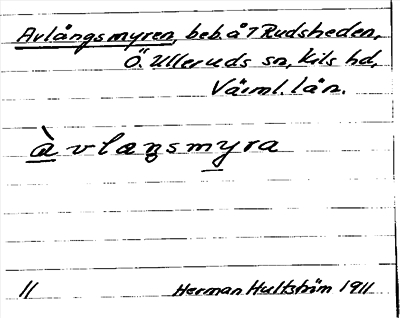 Avlångsmyren, beb. å 7 Rudsheden,
Ö. Ulleruds sn, Kils hd,
Värml. län.
àvlaŋsmyra
11 Herman Hultström 1911